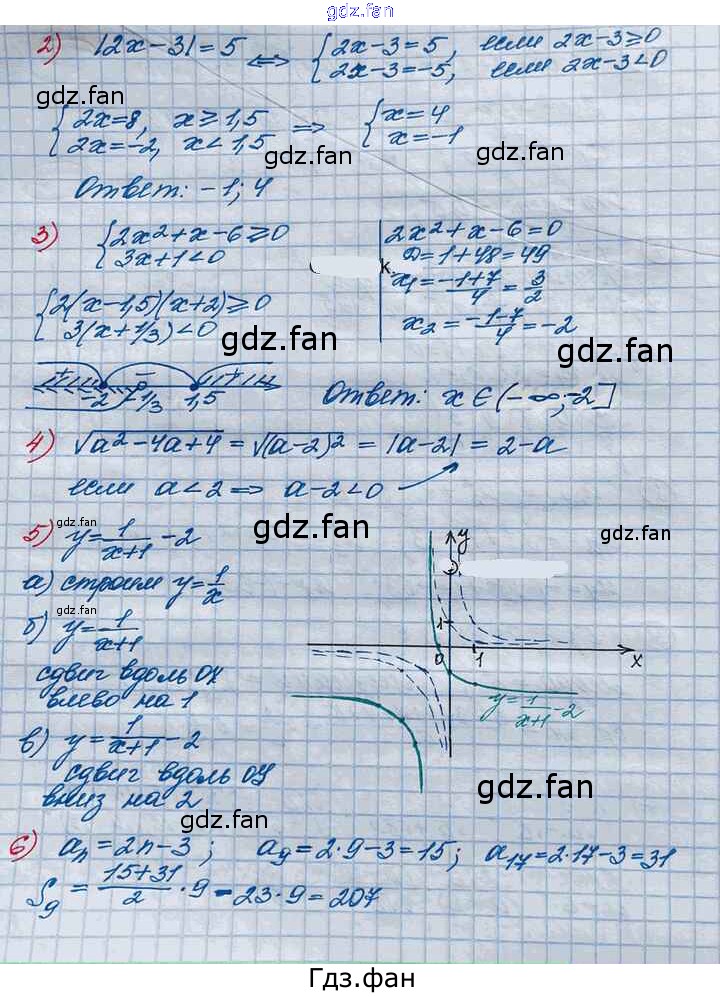 gdz.fan
2) |2x-3|=5 ⟺ { 2x-3=5, если 2x-3≥0
2x-3=-5, если 2x-3<0
gdz.fan
{ 2x=8, x≥1,5 ⟹ { x=4
2x=-2, x<1,5 x=-1
gdz.fan gdz.fan
Ответ: -1; 4
3) { 2x²+x-6≥0
3x+1<0
{ 2(x-1,5)(x+2)≥0
3(x+1/3)<0
2x²+x-6=0
D=1+48=49
к.
x₁=(-1+7)/4=3/2
x₂=(-1-7)/4=-2
gdz.fan gdz.fan
+ - +
-2 -1/3 1,5
Ответ: x∈(-∞;-2]
4) √(a²-4a+4)=√((a-2)²)=|a-2|=2-a
если a<2 ⟹ a-2<0
gdz.fan gdz.fan gdz.fan
5) y=1/(x+1)-2
а) строим y=1/x
gdz.fan
б) y=1/(x+1)
сдвиг вдоль OX
влево на 1
в) y=1/(x+1)-2
сдвиг вдоль OY
вниз на 2
y
1
0 1 x
y=1/(x+1)-2
gdz.fan
gdz.fan
6) aₙ=2n-3; a₉=2·9-3=15; a₁₇=2·17-3=31
S₉=(15+31)/2·9=23·9=207
gdz.fan
Гдз.фан